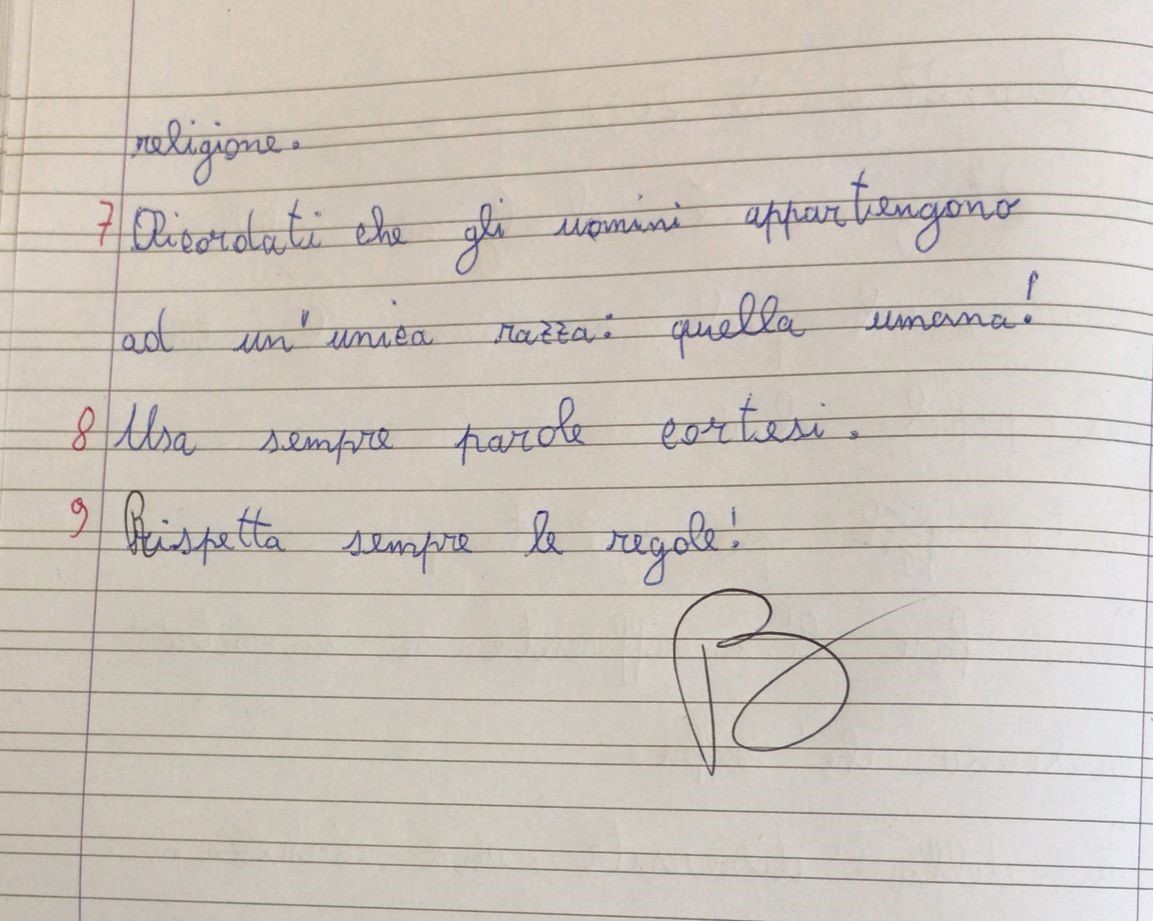 religione.
7 Ricordati che gli uomini appartengono
ad un'unica razza: quella umana!
8 Usa sempre parole cortesi.
9 Rispetta sempre le regole!
B